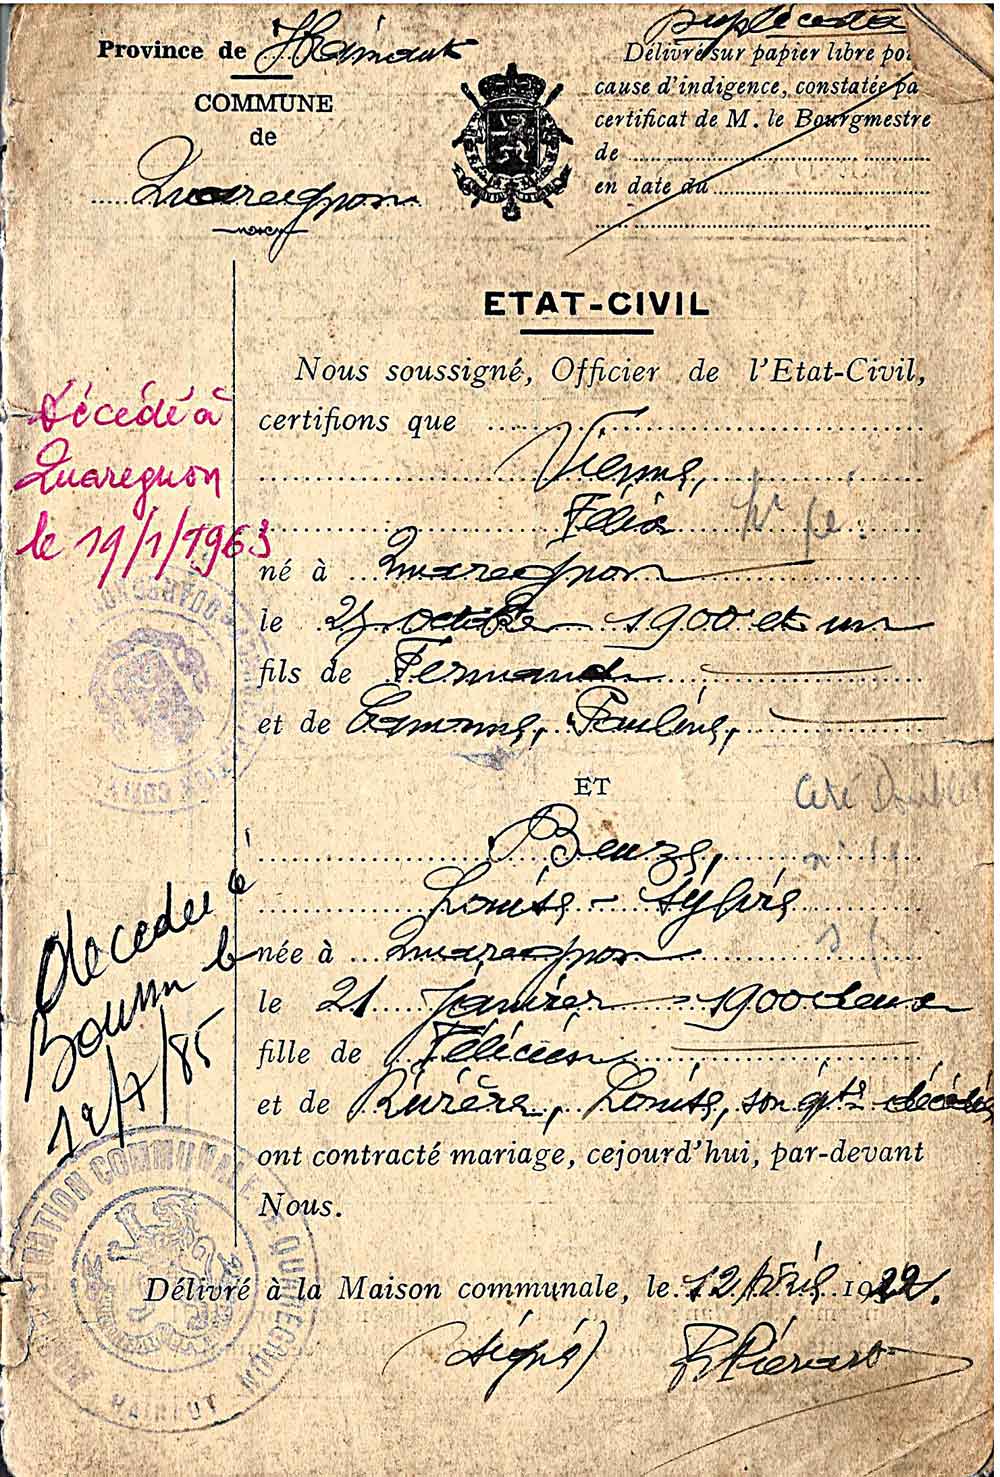 Duplicata
Province de Hainaut
COMMUNE
de
Quaregnon
Délivré sur papier libre po
cause d'indigence, constatée pa
certificat de M. le Bourgmestre
de
en date du
ETAT-CIVIL
Nous soussigné, Officier de l'Etat-Civil,
certifions que
Vienne,
Félix
né à Quaregnon
le octobre 1900 et un
fils de Fernand
et de Pauline,
ET
Beuze,
Louise-Sylvie
née à Quaregnon
le 21 Janvier 1900 deux
fille de Félicien
et de Rivière, Louise, son décédés
ont contracté mariage, cejourd'hui, par-devant
Nous.
Délivré à la Maison communale, le 12 Avril 1922.
(signé) Piérart
Décédé à
Quaregnon
le 19/1/1963
décédée à
Boussu le
12/7/85
ADMINISTRATION COMMUNALE DE QUAREGNON
HAINAUT